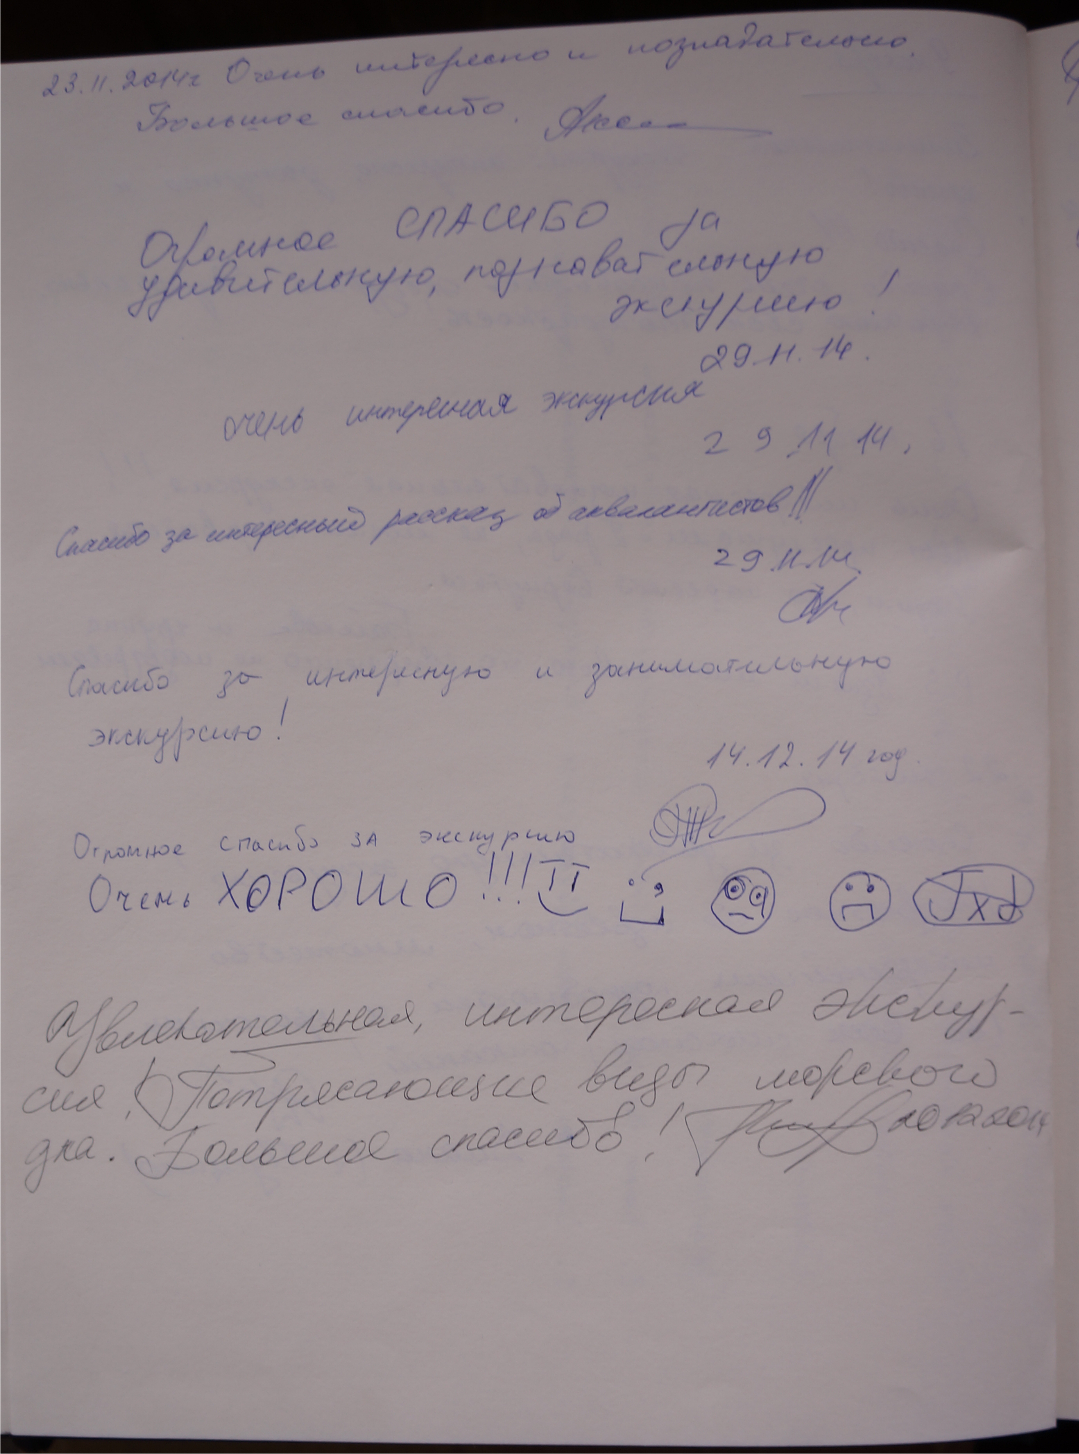 23.11.2014г Очень интересно и познадательно.
Большое спасибо.
Огромное СПАСИБО за
удивительную, познавательную
экскурсию!
29.11.14.
очень интересная экскурсия
29.11 14.
Спасибо за интересный рассказ об аквалангистов!!!
29.11.14.
Спасибо за интересную и занимательную
экскурсию!
14.12.14 год.
Огромное спасибо за экскурсию
Очень ХОРОШО!!!
Увлекательная, интересная экскур-
сия! Потрясающие виды морского
дна. Большое спасибо! 20.12.2014